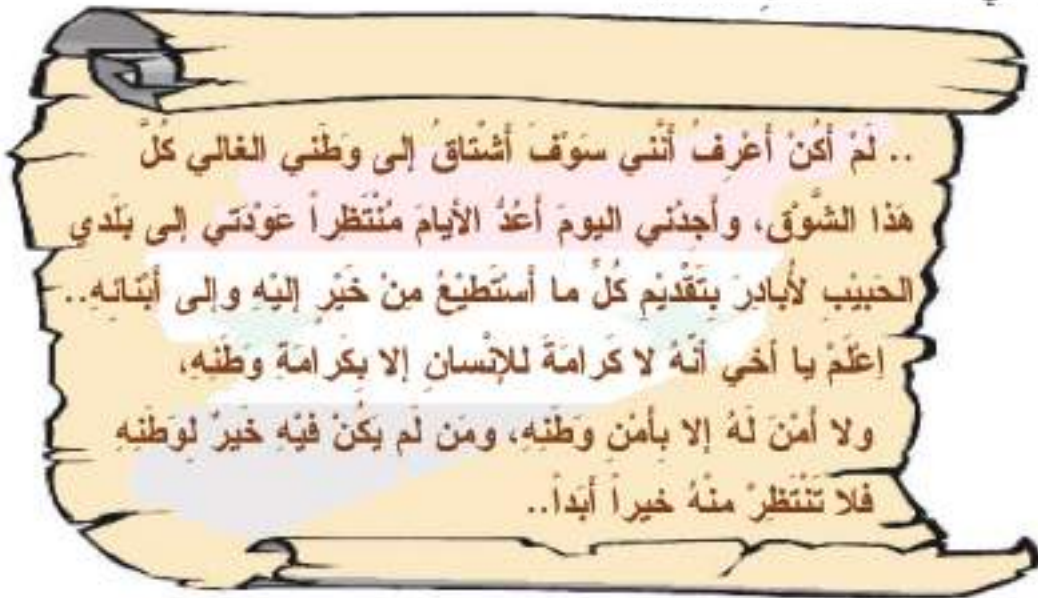 .. لَمْ أَكُنْ أَعْرِفُ أَنَّني سَوْفَ أَشْتاقُ إلى وَطَني الغالي كُلَّ
هَذا الشَّوْق، وأَجِدُني اليومَ أَعُدُّ الأيامَ مُنْتَظِراً عَوْدَتي إلى بَلَدي
الحَبيْبِ لأُبادِرَ بِتَقْديْمِ كُلِّ ما أَسْتَطيْعُ مِنْ خَيْرٍ إليْهِ وإلى أَبْنائِهِ..
اِعْلَمْ يا أخي أنَّهُ لا كَرامَةَ للإنْسانِ إلا بِكَرامَةِ وَطَنِهِ،
ولا أَمْنَ لَهُ إلا بِأَمْنِ وَطَنِهِ، ومَن لَم يَكُنْ فيْهِ خَيرٌ لِوَطَنِهِ
فلا تَنْتَظِرْ منْهُ خيراً أَبَداً..